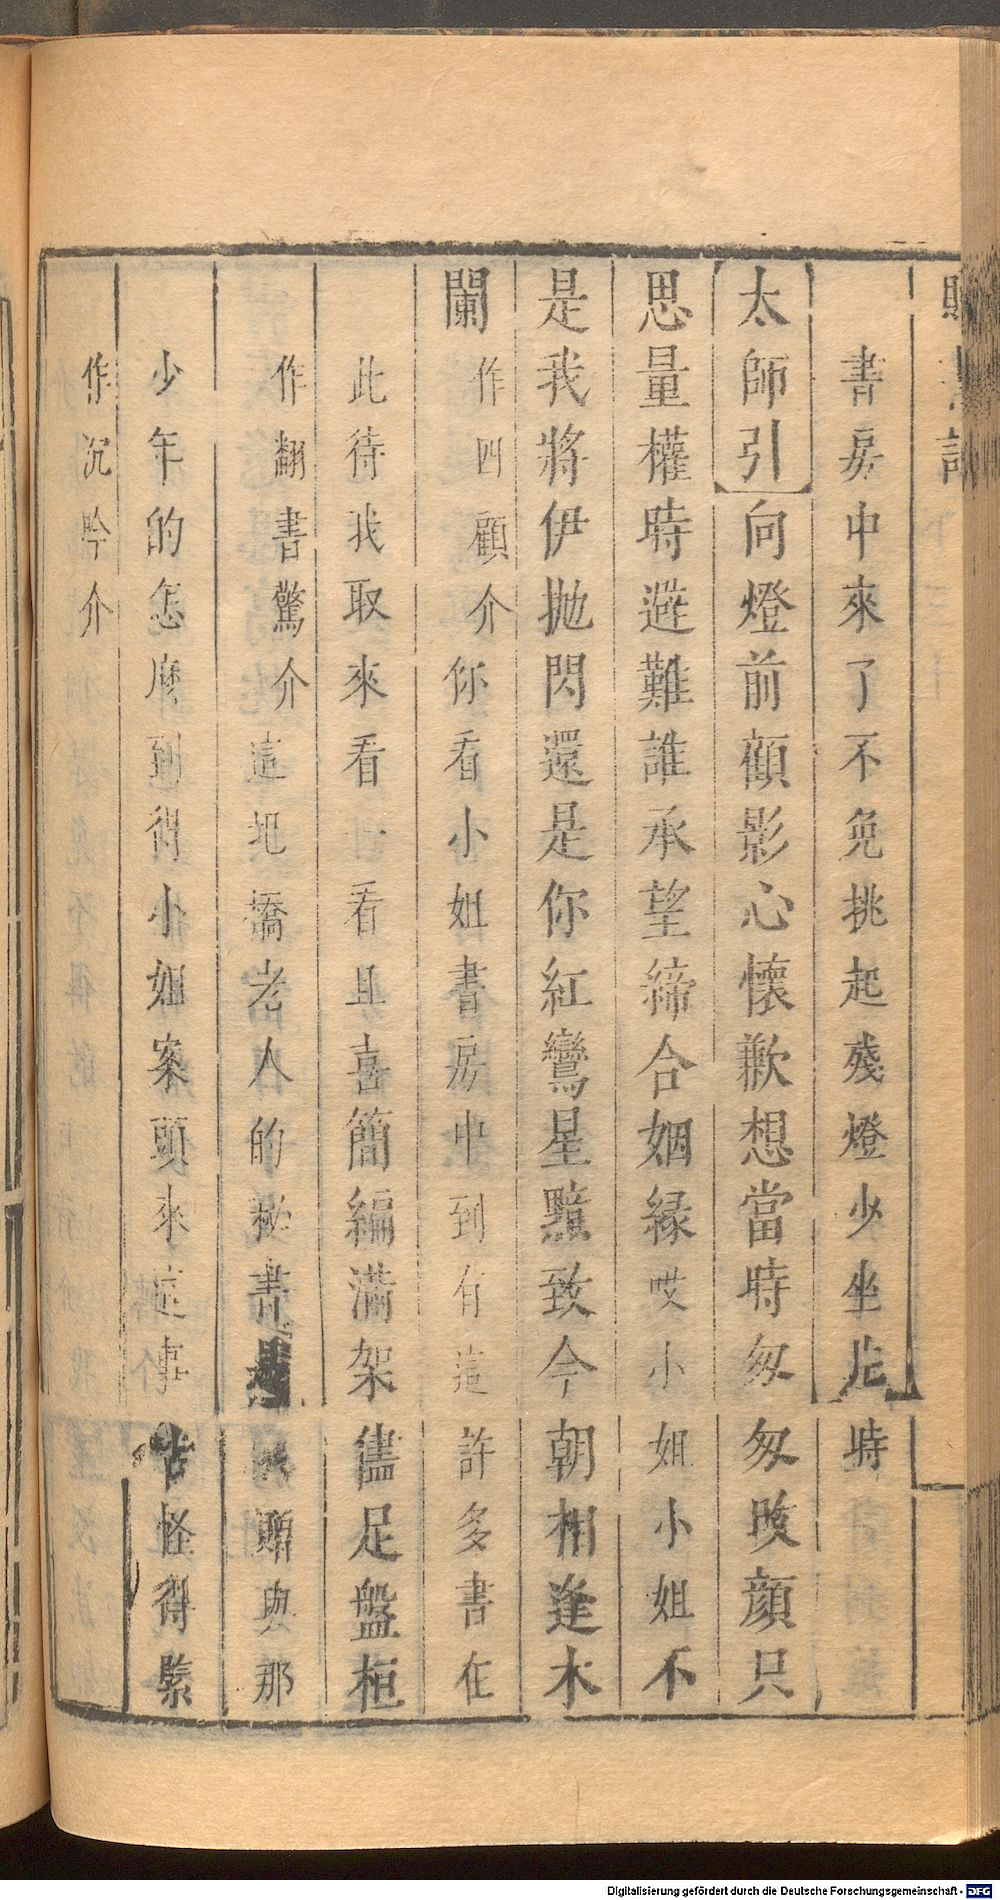 書房中來了不免挑起殘燈少坐片時
太師引向燈前顧影心懷歉想當時匆匆改顔只
思量權時避難誰承望締合姻縁哎小姐小姐不
是我將伊抛閃還是你紅鸞星黯致今朝相逢木
闌作四顧介你看小姐書房中到有這許多書在
此待我取來看看且喜簡編滿架儘足盤桓
作翻書驚介這圯橋老人的秘書是贈與那
少年的怎麼到得小姐案頭來這事古怪得緊
作沉吟介
Digitalisierung gefördert durch die Deutsche Forschungsgemeinschaft - DFG